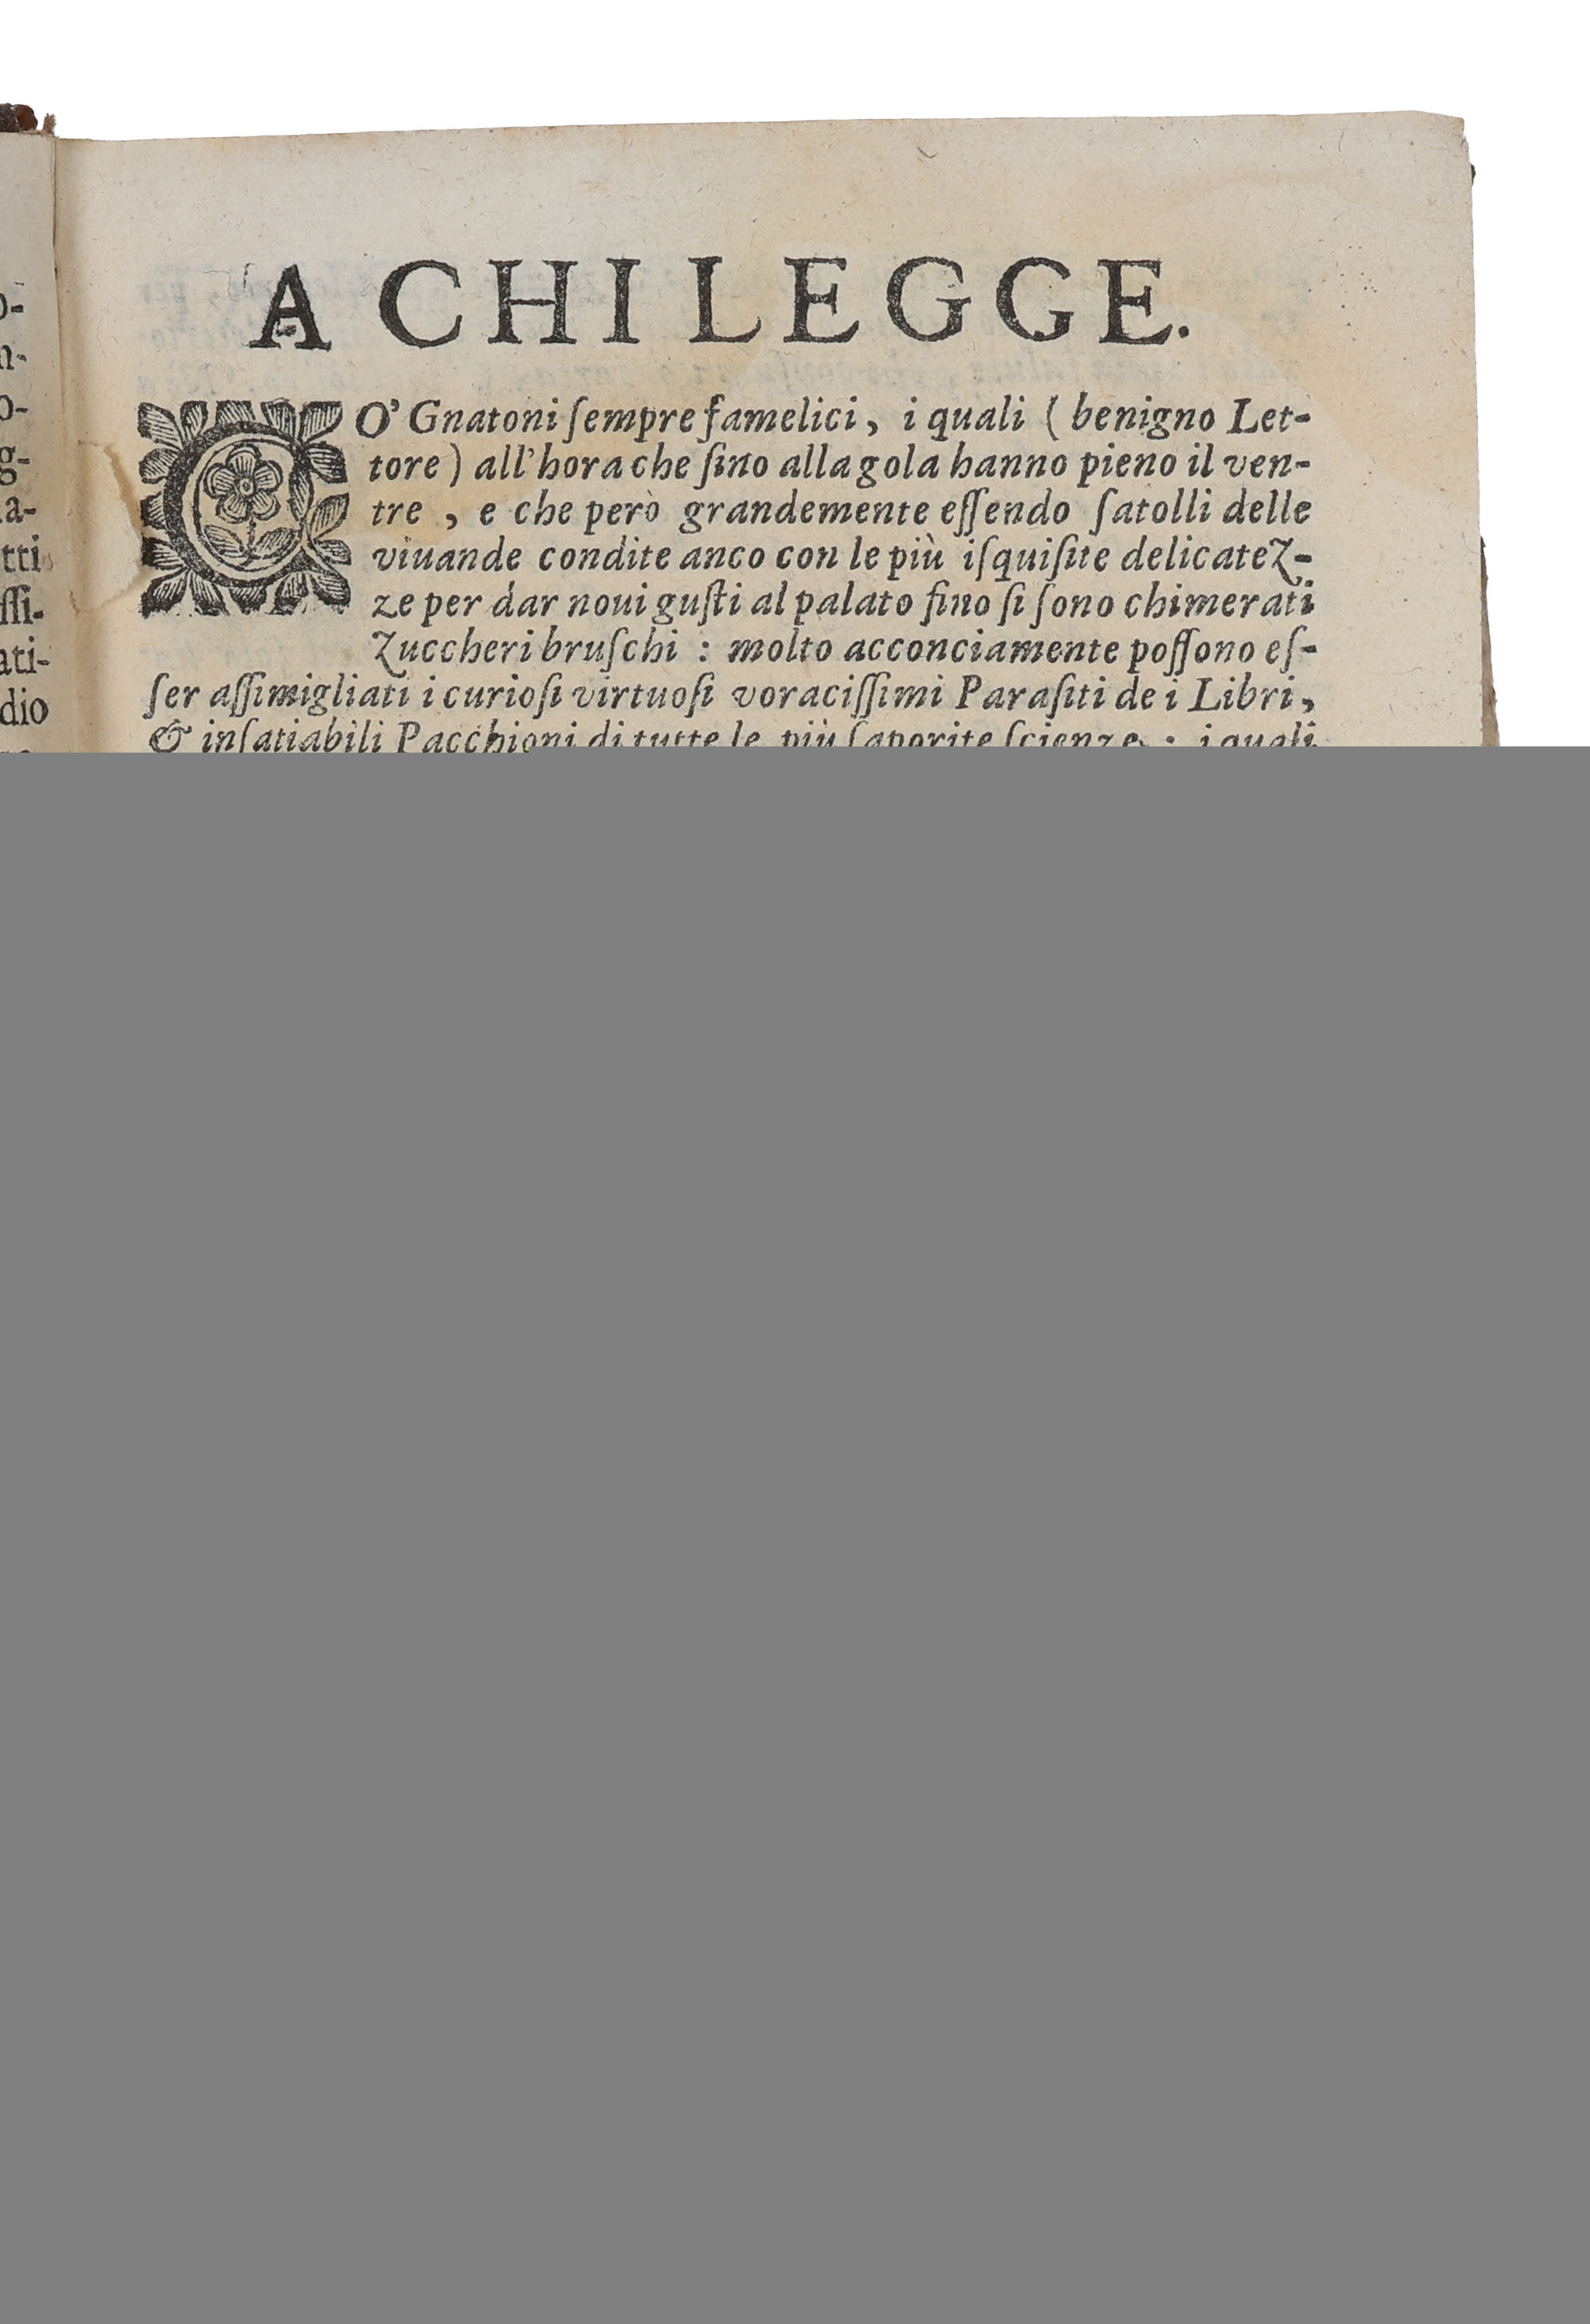 o-
n-
o-
g-
a-
tti
ſſi-
ati-
dio
A CHI LEGGE.
CO' Gnatoni ſempre famelici, i quali (benigno Let-
tore) all'hora che ſino alla gola hanno pieno il ven-
tre, e che però grandemente eſſendo ſatolli delle
viuande condite anco con le più iſquiſite delicatez-
ze per dar noui guſti al palato fino ſi ſono chimerati
Zuccheri bruſchi : molto acconciamente poſſono eſ-
ſer aſſimigliati i curioſi virtuoſi voraciſſimi Paraſiti de i Libri,
& inſatiabili Pacchioni di tutte le più ſaporite ſcienze : i quali